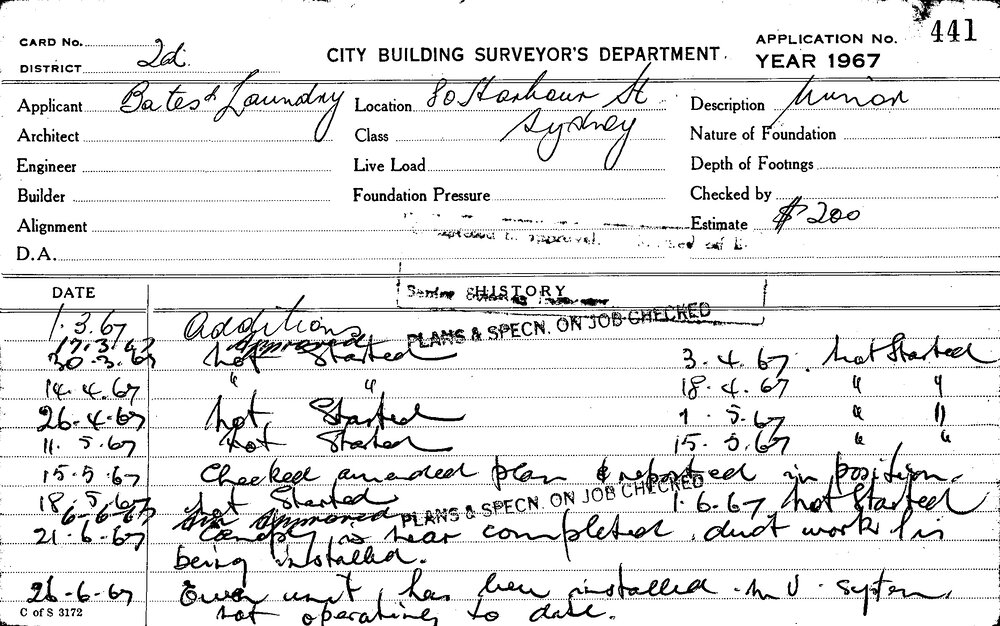 CARD No.
DISTRICT 2d.
CITY BUILDING SURVEYOR'S DEPARTMENT.
APPLICATION No. 441
YEAR 1967
Applicant Bates Laundry Location 80 Harbour St Description Minor
Architect Class Sydney Nature of Foundation
Engineer Live Load Depth of Footings
Builder Foundation Pressure Checked by
Alignment Estimate $200
D.A.
DATE HISTORY
1.3.67 Additions
17.3.67 Approved PLANS & SPECN. ON JOB CHECKED
30.3.67 Not Started 3.4.67. Not Started
14.4.67 " " 18.4.67 " "
26-4-67 Not Started 1.5.67 " "
11.5.67 Not Started 15.5.67 " "
15.5.67 Checked amended plan & reported in position.
18.5.67 Not Started 1.6.67 Not Started
6-6-67 Approved PLANS & SPECN. ON JOB CHECKED
21.6.67 Canopy is near completed, duct work is
being installed.
26-6-67 unit has been installed. M.V. system
not operating to date.
C of S 3172